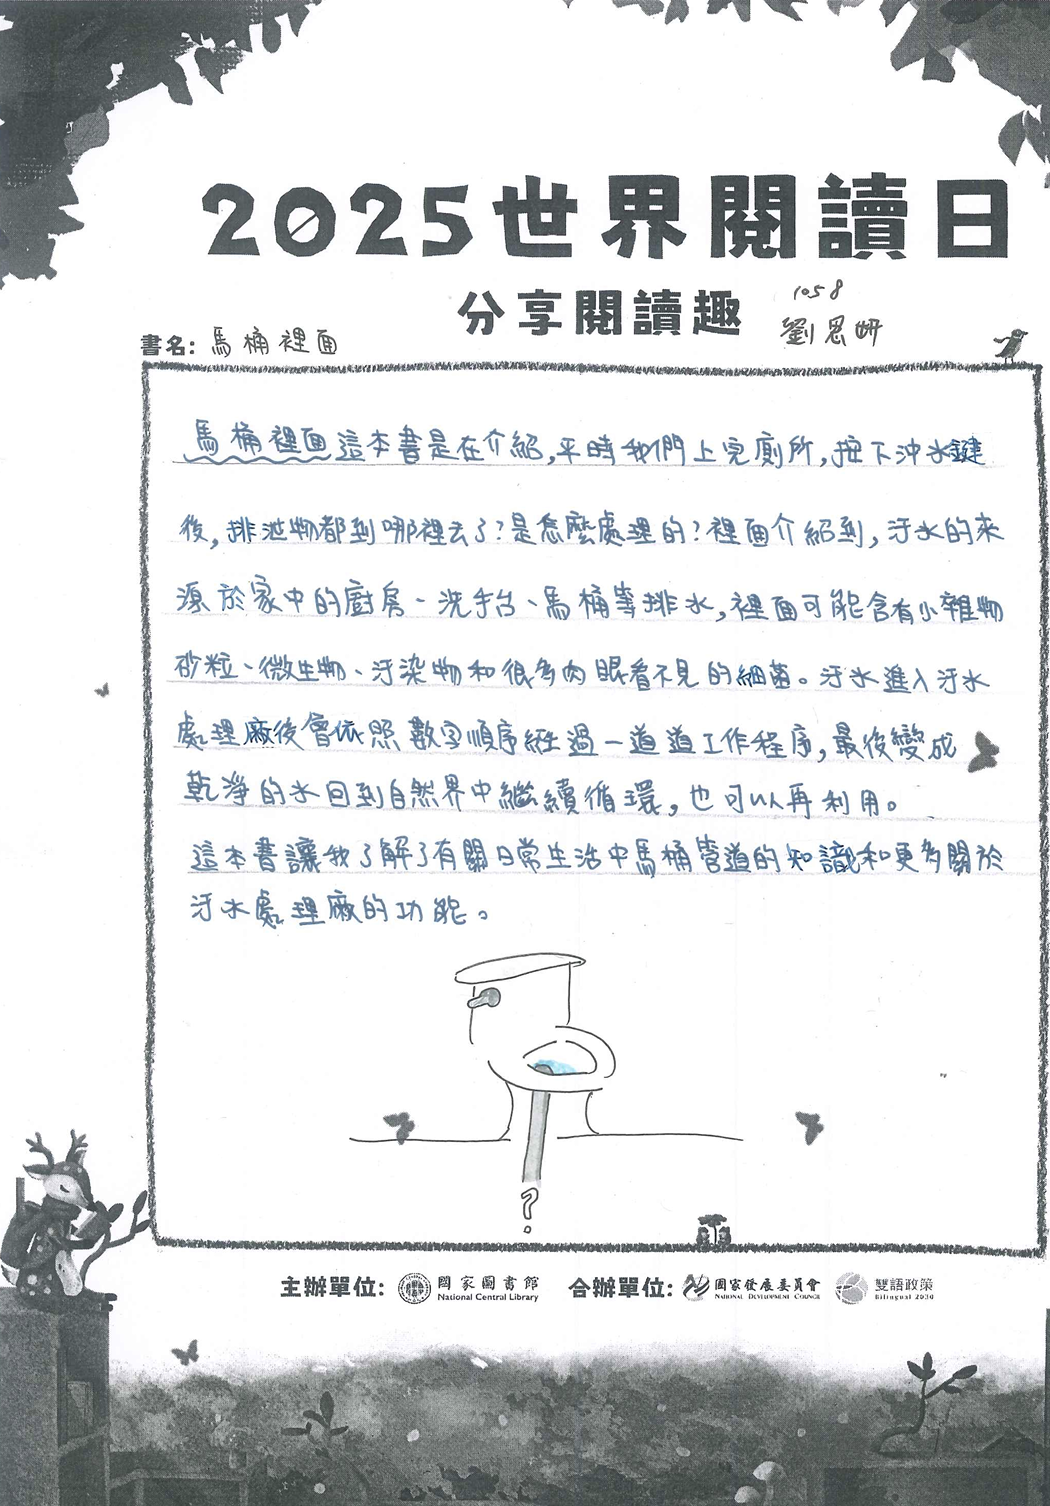 2025世界閱讀日
分享閱讀趣
1058
劉恩妍
書名: 馬桶裡面
馬桶裡面這本書是在介紹,平時我們上完廁所,按下沖水鍵
後,排泄物都到哪裡去了?是怎麼處理的?裡面介紹到,汙水的來
源於家中的廚房、洗手台、馬桶等排水,裡面可能含有小雜物
砂粒、微生物、汙染物和很多肉眼看不見的細菌。汙水進入汙水
處理廠後會依照數字順序經過一道道工作程序,最後變成
乾淨的水回到自然界中繼續循環,也可以再利用。
這本書讓我了解了有關日常生活中馬桶管道的知識和更多關於
汙水處理廠的功能。
?
主辦單位: 國家圖書館 National Central Library 合辦單位: 國家發展委員會 National Development Council 雙語政策 Bilingual 2030